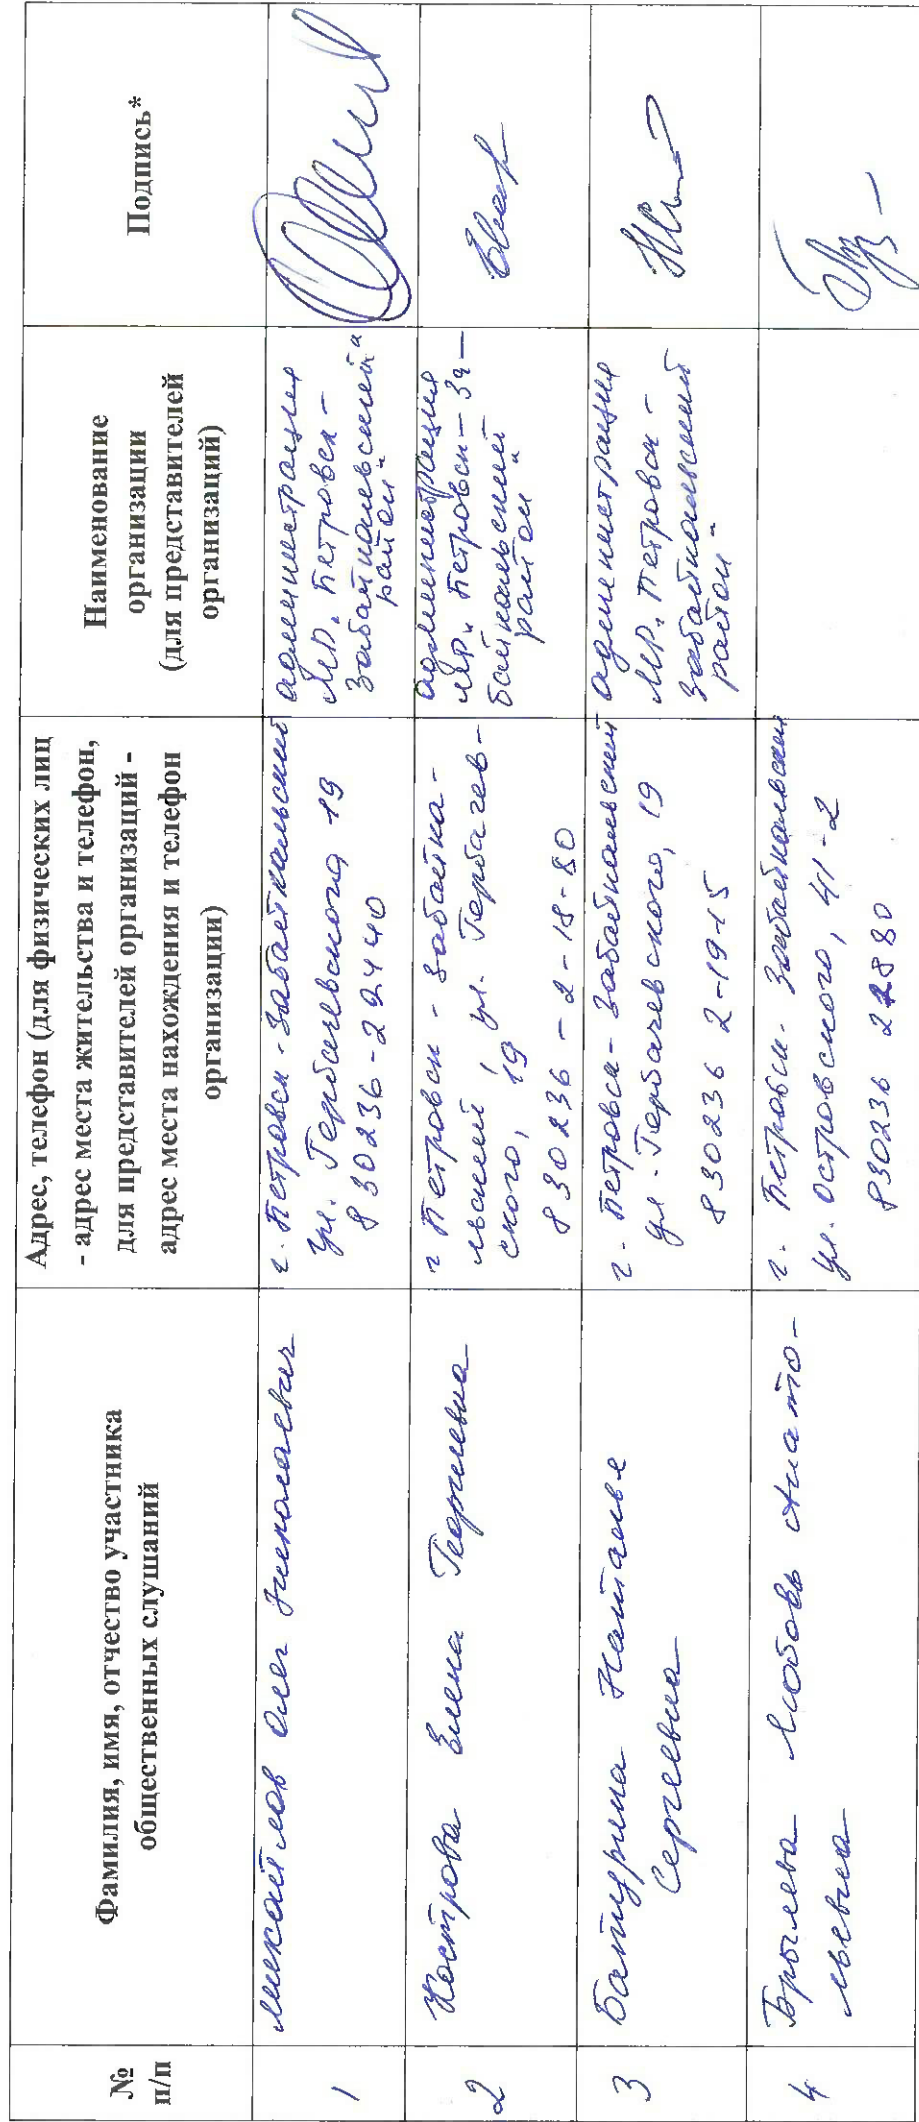 №
п/п
Фамилия, имя, отчество участника
общественных слушаний
Адрес, телефон (для физических лиц
- адрес места жительства и телефон,
для представителей организаций -
адрес места нахождения и телефон
организации)
Наименование
организации
(для представителей
организаций)
Подпись*
1
Михайлов Олег Николаевич
г. Петровск-Забайкальский
ул. Горбачевского 19
8 30236-22440
администрация
МР "Петровск-
Забайкальский
район"
2
Кострова Елена Георгиевна
г Петровск - Забайка-
льский, ул. Горбачев-
ского, 19
8 30236 - 2-18-80
администрация
МР "Петровск-За-
байкальский
район"
3
Батурина Наталья
Сергеевна
г. Петровск-Забайкальский
ул. Горбачевского, 19
8 30236 2-19-15
администрация
МР "Петровск-
Забайкальский
район"
4
Брылева Любовь Анато-
льевна
г. Петровск-Забайкальский
ул. Островского, 41-2
830236 2880